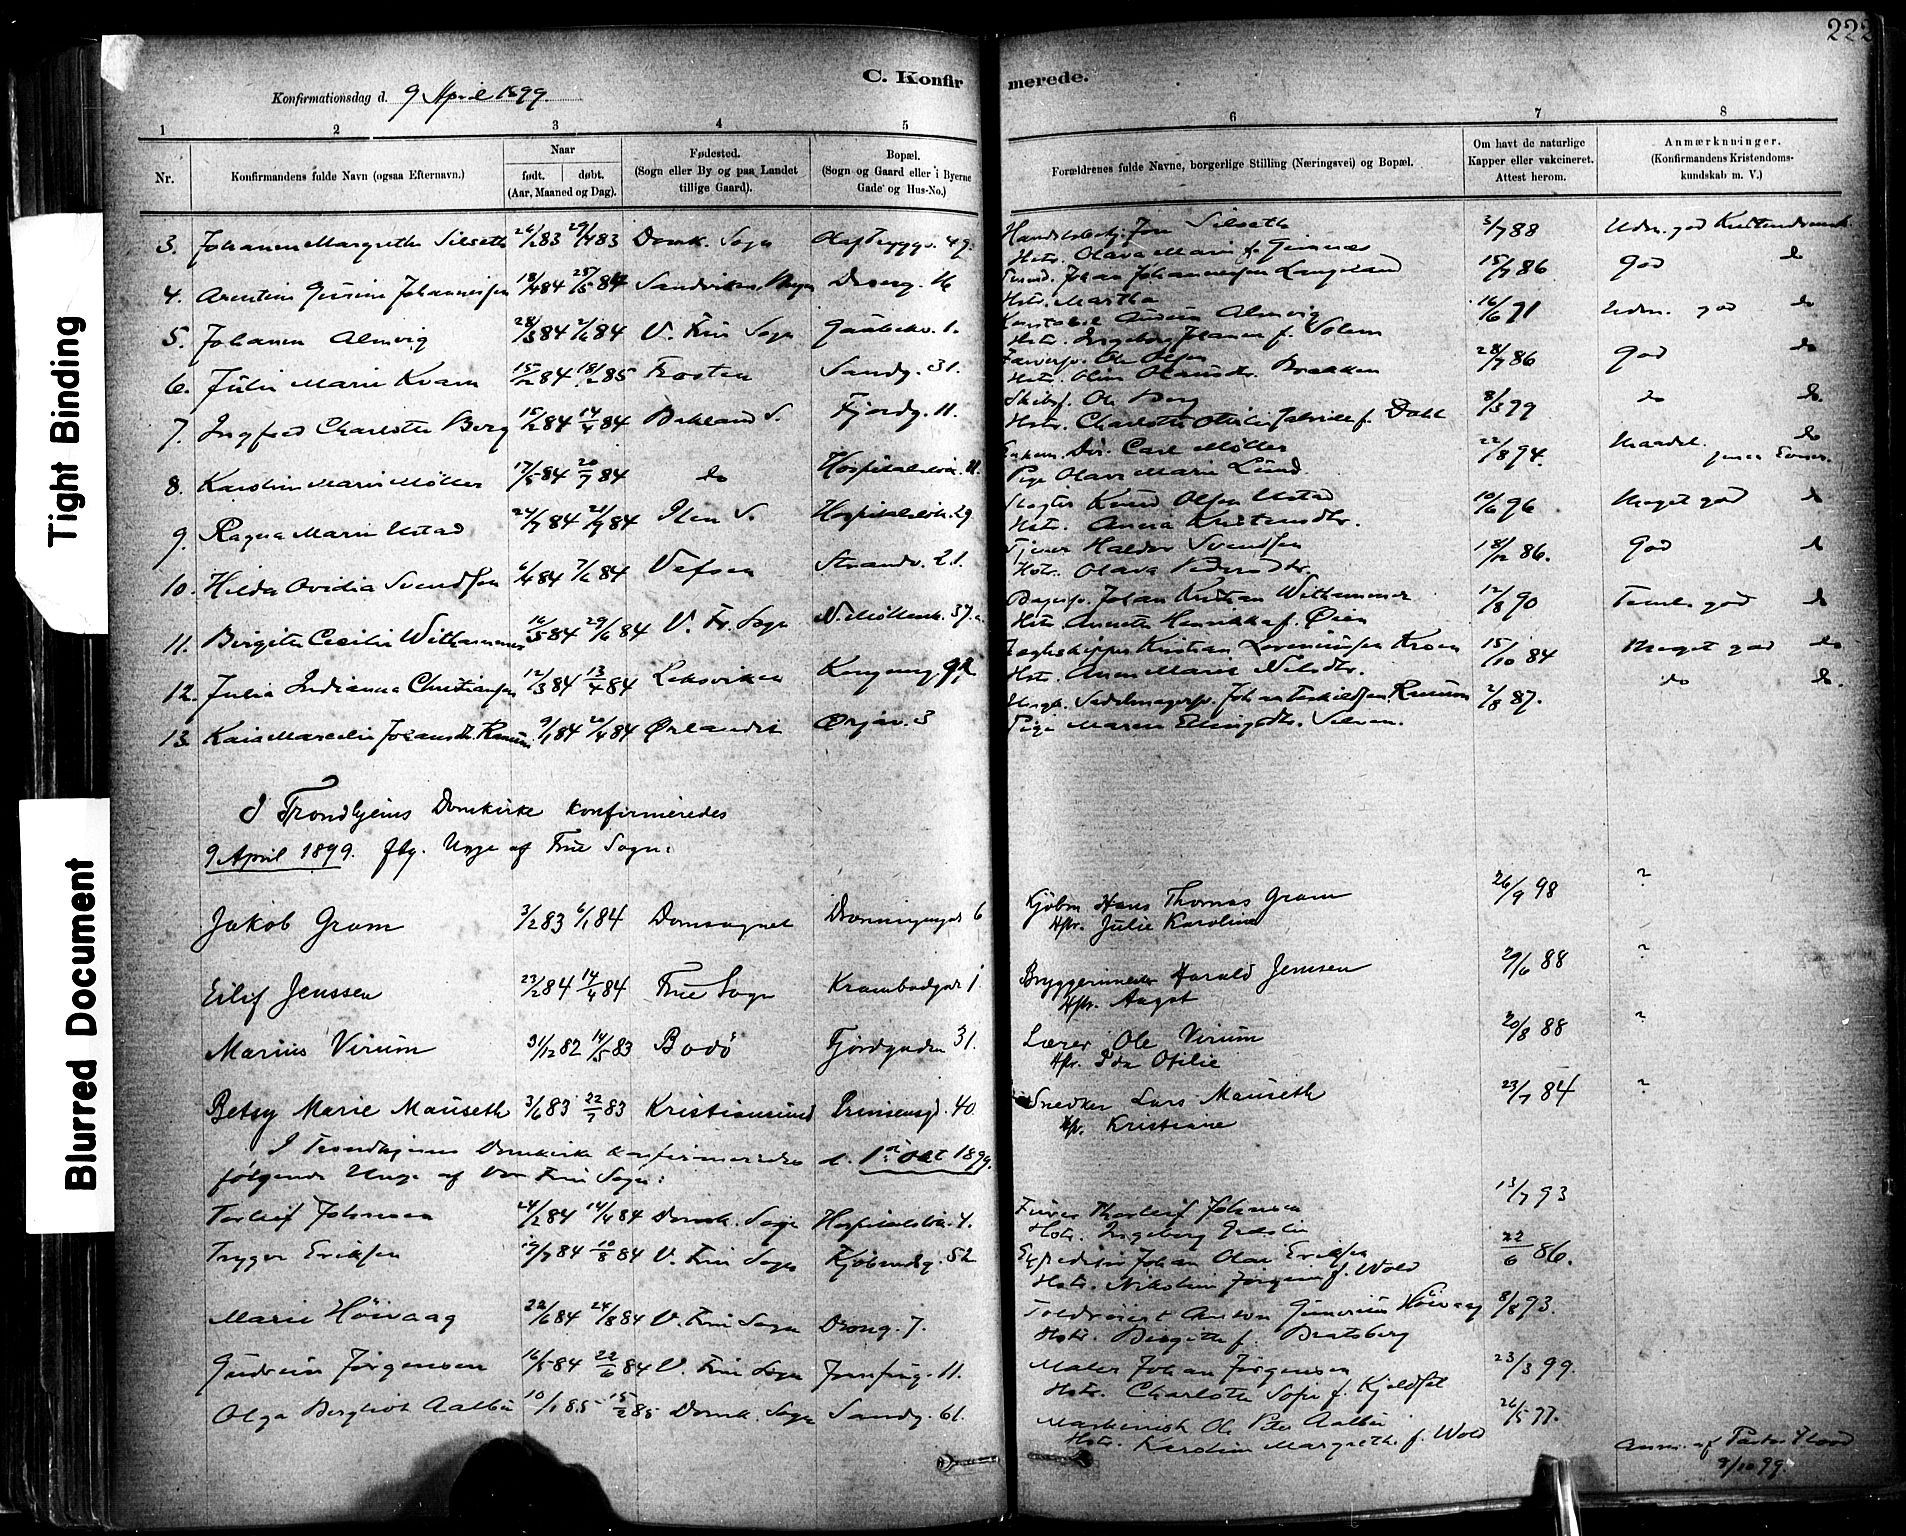 222
C. Konfirmerede.
Konfirmationsdag d. 9 April 1899.
1 2 3 4 5 6 7 8
Nr.
Konfirmandens fulde Navn (ogsaa Efternavn).
Naar
født. døbt.
(Aar, Maaned og Dag).
Fødested.
(Sogn eller By og paa Landet
tillige Gaard).
Bopæl.
(Sogn og Gaard eller i Byerne
Gade og Hus-No.)
Forældrenes fulde Navne, borgerlige Stilling (Næringsvei) og Bopæl.
Om havt de naturlige
Kapper eller vakcineret.
Attest herom.
Anmærkninger.
(Konfirmandens Kristendoms-
kundskab m. V.)
3. Johanna Margrethe Silseth 83 29/4 83 Domk. Sogn Olaf Trygv. 49. Jon Silseth 3/7 88 Udm. god Kristendomsk.
Hstr. Olava Marie f.
4. Johannessen 18/4 84 25/5 84 Drong. 16 Johan Johannessen Langeland 15/7 86 God do
Hstr. Martha
5. Johanna Almvig 28/3 84 2/6 84 V. Frue Sogn 1. Almvig 16/6 71 Udm. god do
Hstr. Ingeborg Johanna f. Solem
6. Julie Marie Kvam 15/12 84 18/2 85 Frosten Sandg. 31. Ole Olsen 28/7 86 God do
Hstr. Brekken
7. Charlotte Berg 15/2 84 14/4 84 Bakland S. Fjordg. 11. Ole Berg 8/3 79 do do
Hstr. Charlotte f. Dahl
8. Karoline Marie Møller 17/5 84 20/7 84 do Hospitalsløk. 11. Carl Møller 22/8 94. do
Pige Olava Marie Lund
9. Ragna Marie Ustad 24/7 84 21/9 84 Ilen S. Hospitalsløk. 29 Knud Olsen Ustad 10/6 96 Meget god do
Hstr. Anna Kristensdtr.
10. Hilda Ovidia Svendsen 6/4 84 7/6 84 Vefsen Strandv. 21. Tjener Haldor Svendsen 18/12 86. God do
Hstr. Olava Pedersdtr.
11. Birgitte Cecilie Withammer 16/5 84 29/6 84 V. Fr. Sogn N. Møllenb. 37. Johan Kristian Withammer 12/8 90 Teml. god do
Hstr. Annette Henrikka f. Øien
12. Julia Indianna Christiansen 12/3 84 13/4 84 Leksviken Kongensg. Kristian Lorentsen 15/10 84 Meget god do
Hstr. Anne Marie Nilsdtr.
13. Kaia Marcelie Johansdtr. 9/1 84 84 Ørlandet Ørjav. 3 2/8 87. do do
Pige Maren Ellingsdtr. Selven.
I Trondhjems Domkirke konfirmeredes
9 April 1899. flg. Unge af Frue Sogn:
Jakob Gram 3/2 83 6/1 84 Domsognet Dronningensgd 6 Kjøbm Hans Thomas Gram 26/9 98 ?
Hstr. Julie Karoline
Eilif Jenssen 23/2 84 14/4 84 Frue Sogn Krambodgad 1. Bryggerimester Harald Jenssen 29/6 88 ?
Hstr. Aagot
Marius Virum 31/12 82 14/5 83 Bodö Fjordgaden 31. Lærer Ole Virum 20/8 88 ?
Hstr. Ida Otilie
Betsy Marie Mauseth 3/6 83 22/7 83 Kristiansund Prinsensgd. 40 Snedker Lars Mauseth 23/7 84 ?
Hstr. Kristiane
I Trondhjems Domkirke konfirmeredes d. 1ste Okt 1899
følgende Unge af Vor Frue Sogn:
Torleif Johnsen 24/2 84 14/4 84 Domk. Sogn Hospitalsløk. 4. Thorleif Johnsen 13/7 93
Hstr. Ingeborg
Trygve Eriksen 19/7 84 10/8 84 V. Frue Sogn Kjøbmdg. 52 Johan Olav Eriksen 22/6 86.
Hstr. Nikoline Jørgine f. Wold
Marie Höivaag 22/6 84 24/8 84 V. Frue Sogn Drong. 7. Gunerius Höivaag 8/8 93.
Hstr. Birgitte f. Bratsberg
Gudrun Jørgensen 16/5 84 22/6 84 V. Frue Sogn 11. Maler Johan Jørgensen 23/3 99.
Hstr. Charlotte Sofie f. Kjeldset
Olga Bergliot Aalbu 10/1 85 15/2 85 Domk. Sogn Sandg. 61. Maskinist Ole Peter Aalbu 26/5 77.
Hstr. Karoline Margrethe f. Wold
Anm. af Pastor
3/10 99.
Tight Binding
Blurred Document